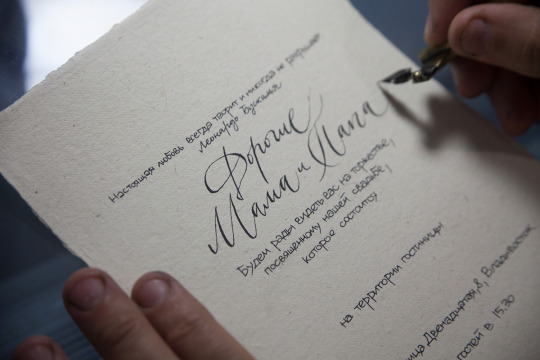 Настоящая любовь всегда творит и никогда не разрушает
Леонардо Бускалья
Дорогие
Мама и Папа
Будем рады видеть вас на торжестве,
посвященному нашей свадьбе,
которое состоится
на территории гостиницы
Двенадцатая, 8, Владивосток
гостей в 15.30